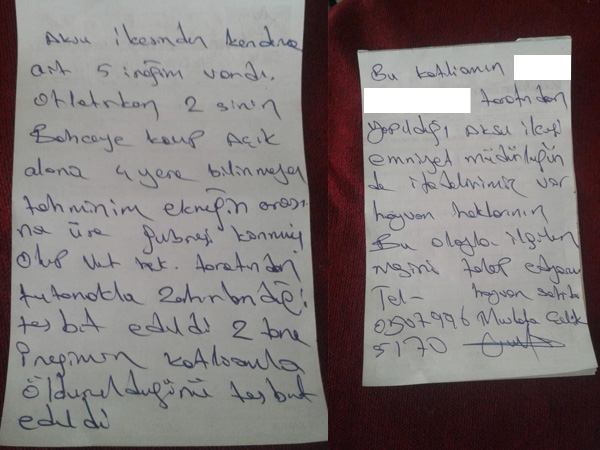 Aksu ilcesinden kendime
ait 5 ineğim vardı.
otlatırken 2 sinin
Bahceye kaçıp Açık
alana 4 yere bilinmeyen
tahminim ekmeğin arası
na üre gubresi konmuş
olup Vet hek. tarafından
tutanakla zehirlendiği
tesbit edildi 2 tane
ineğimin katliamla
öldürüldüğünü tesbit
edildi
Bu katliamın
tarafından
yapıldığı Aksu ilcesi
emniyet müdürlüğün
de ifadelerimiz var
hayvan haklarının
Bu olayla ilgilen
mesini talep ediyorum
Tel- hayvan sahibi
0507 996 Mustafa Çelik
5170